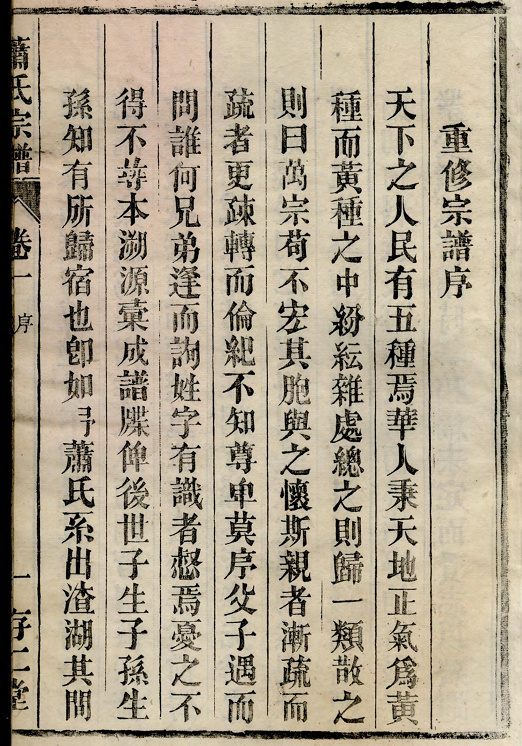 重修宗譜序
天下之人民有五種焉華人秉天地正氣爲黃
種而黃種之中紛紜雜處總之則歸一類散之
則曰萬宗苟不宏其胞與之懷斯親者漸疏而
疏者更疎轉而倫紀不知尊卑莫序父子遇而
問誰何兄弟逢而詢姓字有識者惄焉憂之不
得不尋本溯源彙成譜牒俾後世子生子孫生
孫知有所歸宿也卽如弓蕭氏系出渣湖其間
蕭氏宗譜 卷一 序 一 存仁堂